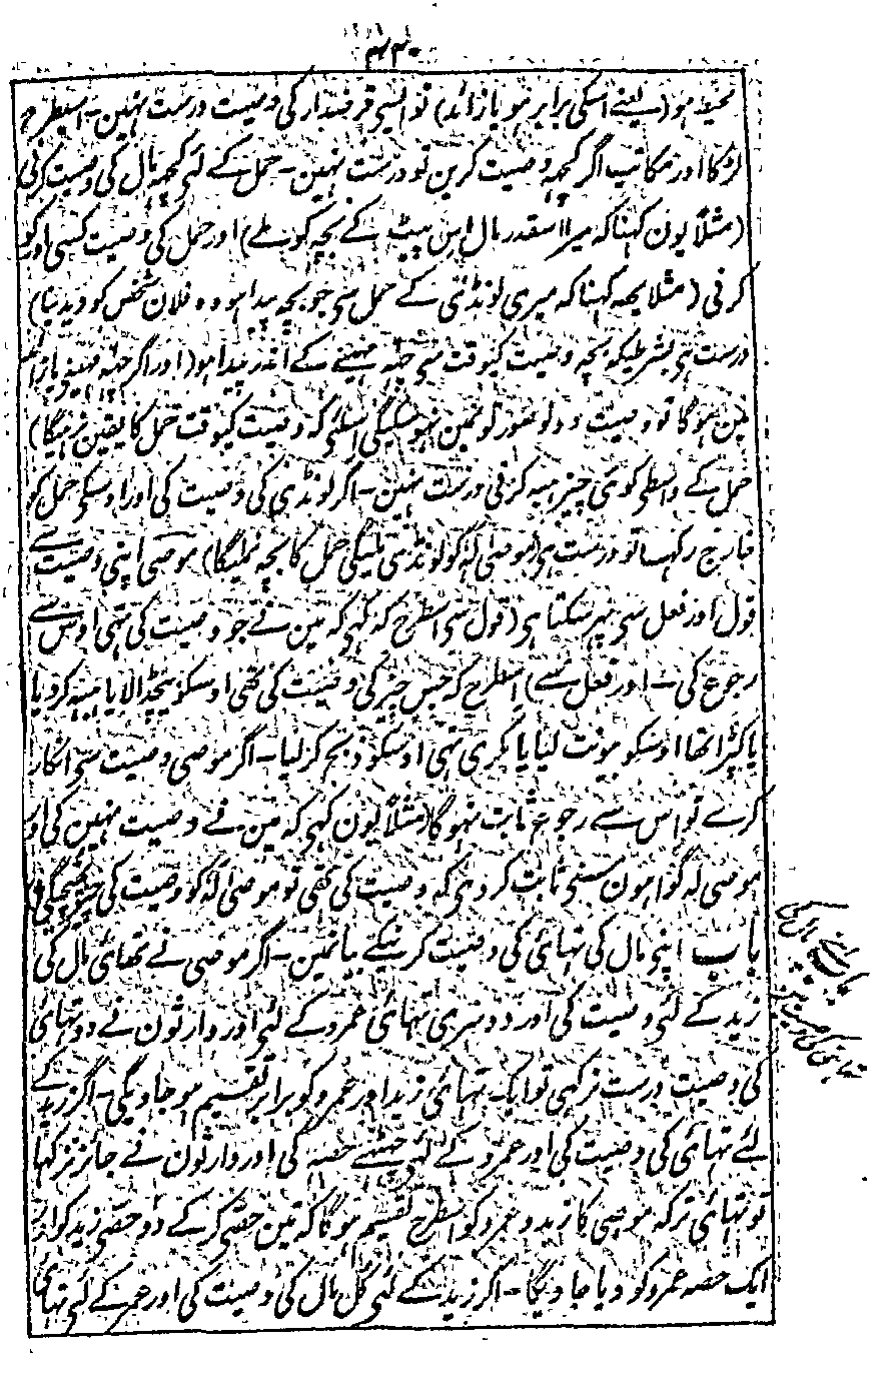 ۴۳۰
محیط ہو (یعنے اسکی برابر ہو یا زائد) تو ایسی قرضدار کی وصیت درست نہین۔ اسیطرح
لڑکا اور مکاتب اگر کچھ وصیت کرین تو درست نہین۔ حمل کے لئی کچھ مال کی وصیت کرنی
(مثلاً یون کہنا کہ میرا اسقدر مال اس پیٹ کے بچہ کو ملے) اور حمل کی وصیت کسی اور کو
کرنی (مثلا یہہ کہنا کہ میری لونڈی کے حمل سی جو بچہ پیدا ہو وہ فلان شخص کو دیدینا)
درست ہی بشرطیکہ بچہ وصیت کیوقت سی چھہ مہینے کے اندر پیدا ہو (اور اگر چھہ مہینے یا زائد
مین ہوگا تو وصیت دونو صورتونمین نہوسکیگی اسلئی کہ وصیت کیوقت حمل کا یقین نرہیگا)
حمل کے واسطی کوئی چیز ہبہ کرنی درست نہین۔ اگر لونڈی کی وصیت کی اور اوسکی حمل کو
خارج رکہا تو درست ہی (موصی لہ کو لونڈی ملیگی حمل کا بچہ نملیگا) موصی اپنی وصیت سے
قول اور فعل سی پہر سکتا ہی (قول سی اسطرح کہ کہی کہ مین نے جو وصیت کی تہی اوس سے
رجوع کی۔ اور فعل سے) اسطرح کہ جس چیز کی وصیت کی تھی اوسکو بیچڈالا یا ہبہ کر دیا
یا کپڑا تھا اوسکو بیونت لیا یا بکری تہی اوسکو ذبح کر لیا۔ اگر موصی وصیت سی انکار
کرے تو اس سے رجوع ثابت نہوگا (مثلاً یون کہی کہ مین نے وصیت نہین کی اور
موصی لہ گواہون سی ثابت کر دی کہ وصیت کی تھی تو موصی لہ کو وصیت کی چیز
باب اپنی مال کی تہائی کی وصیت کرنیکے بیانمین۔ اگر موصی نے تہائی مال کی
زید کے لئی وصیت کی اور دوسری تہائی عمرو کے لئی اور وارثون نے دو تہائی
کی وصیت درست نرکہی تو ایک تہائی زید اور عمرو کو برابر تقسیم ہو جاویگی۔ اگر زید کے
لئے تہائی کی وصیت کی اور عمرو کے لئے چھٹے حصہ کی اور وارثون نے جائز نرکہا
تو تہائی ترکہ موصی کا زید و عمرو کو اسطرح تقسیم ہوگا کہ تین حصی کر کے دو حصی زید کو اور
ایک حصہ عمرو کو دیا جاویگا۔ اگر زید کے لئی کل مال کی وصیت کی اور عمر کے لئی تہائی